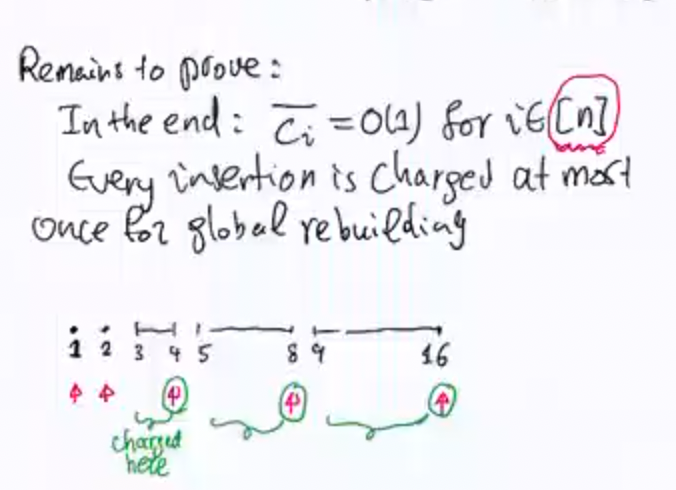 Remains to prove:
In the end: c̅ᵢ = O(1) for i∈[n]
Every insertion is charged at most
once for global rebuilding
1 2 3 4 5 8 9 16
charged
here